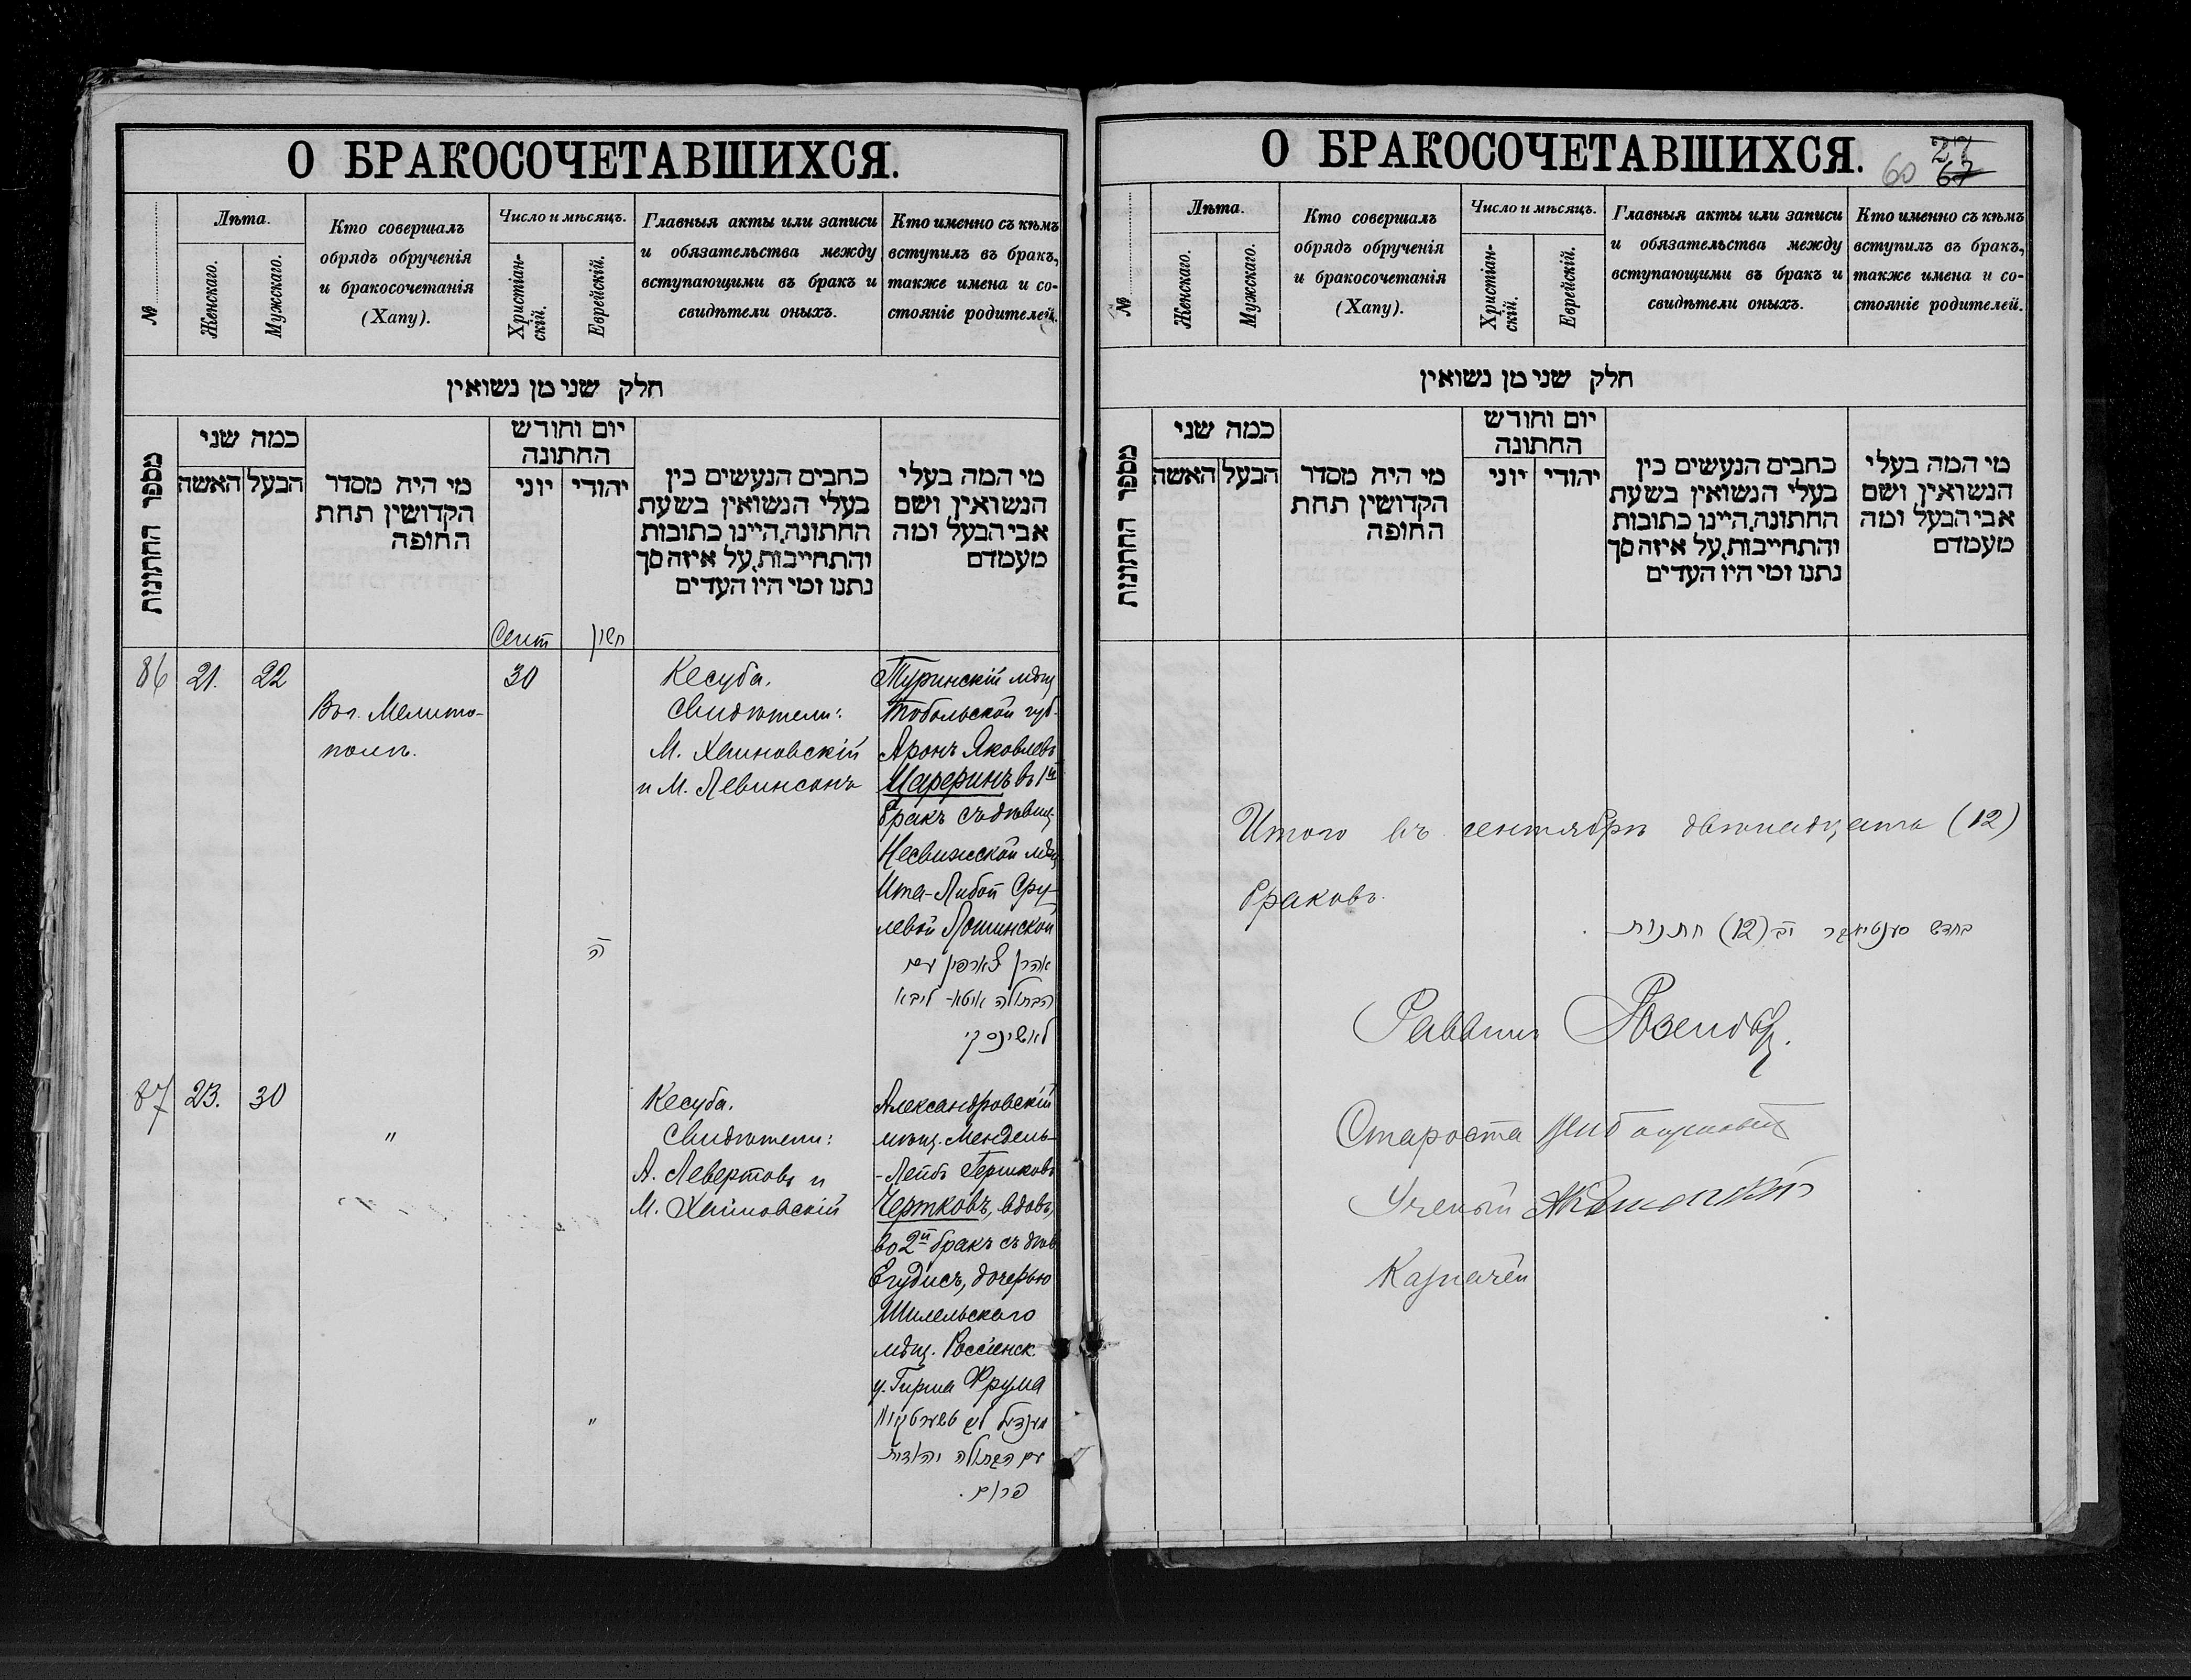 О БРАКОСОЧЕТАВШИХСЯ.
№
Лѣта.
Женскаго.
Мужскаго.
Кто совершалъ
обрядъ обрученія
и бракосочетанія
(Хапу).
Число и мѣсяцъ.
Христіан-
скій.
Еврейскій.
Главныя акты или записи
и обязательства между
вступающими въ бракъ и
свидѣтели оныхъ.
Кто именно съ кѣмъ
вступилъ въ бракъ,
также имена и со-
стояніе родителей.
חלק שני מן נשואין
מספר החתונות
כמה שני
האשה
הבעל
מי היה מסדר
הקדושין תחת
החופה
יום וחודש
החתונה
יוני
יהודי
כתבים הנעשים בין
בעלי הנשואין בשעת
החתונה, היינו כתובות
והתחייבות, על איזה סך
נתנו ומי היו העדים
מי המה בעלי
הנשואין ושם
אבי הבעל ומה
מעמדם
Сент
חשון
86
21.
22
Въ г. Мелито-
полѣ.
30
ה
Кесуба.
Свидѣтели:
М. Хаиновскій
и М. Левинсонъ
Туринскій мѣщ
Тобольской губ.
Аронъ Яковлевъ
Царфинъ въ 1й
бракъ съ дѣвиц.
Несвижской мѣщ.
Ита-Либой Сру-
левой Лошинской
אהרן צארפין עם
הבתולה איטא-ליבא
לאשינסקי
87
23.
30
"
"
Кесуба.
Свидѣтели:
А. Левертовъ и
М. Хаиновскій
Александровскій
мѣщ. Мендель-
-Лейбъ Гершковъ
Чертковъ, вдовъ,
во 2й бракъ съ дѣв
Егудисъ, дочерью
Шилельскаго
мѣщ. Россіенск.
у. Гирша Фрума
מענדל ליב טשערטקוב
עם הבתולה יהודית
פרום.
О БРАКОСОЧЕТАВШИХСЯ.
60
27
67
№
Лѣта.
Женскаго.
Мужскаго.
Кто совершалъ
обрядъ обрученія
и бракосочетанія
(Хапу).
Число и мѣсяцъ.
Христіан-
скій.
Еврейскій.
Главныя акты или записи
и обязательства между
вступающими въ бракъ и
свидѣтели оныхъ.
Кто именно съ кѣмъ
вступилъ въ бракъ,
также имена и со-
стояніе родителей.
חלק שני מן נשואין
מספר החתונות
כמה שני
האשה
הבעל
מי היה מסדר
הקדושין תחת
החופה
יום וחודש
החתונה
יוני
יהודי
כתבים הנעשים בין
בעלי הנשואין בשעת
החתונה, היינו כתובות
והתחייבות, על איזה סך
נתנו ומי היו העדים
מי המה בעלי
הנשואין ושם
אבי הבעל ומה
מעמדם
Итого въ сентябрѣ двѣнадцать (12)
браковъ.
בחדש סענטיאבר יב (12) חתנות
Раввинъ
Староста
Ученый
Казначей